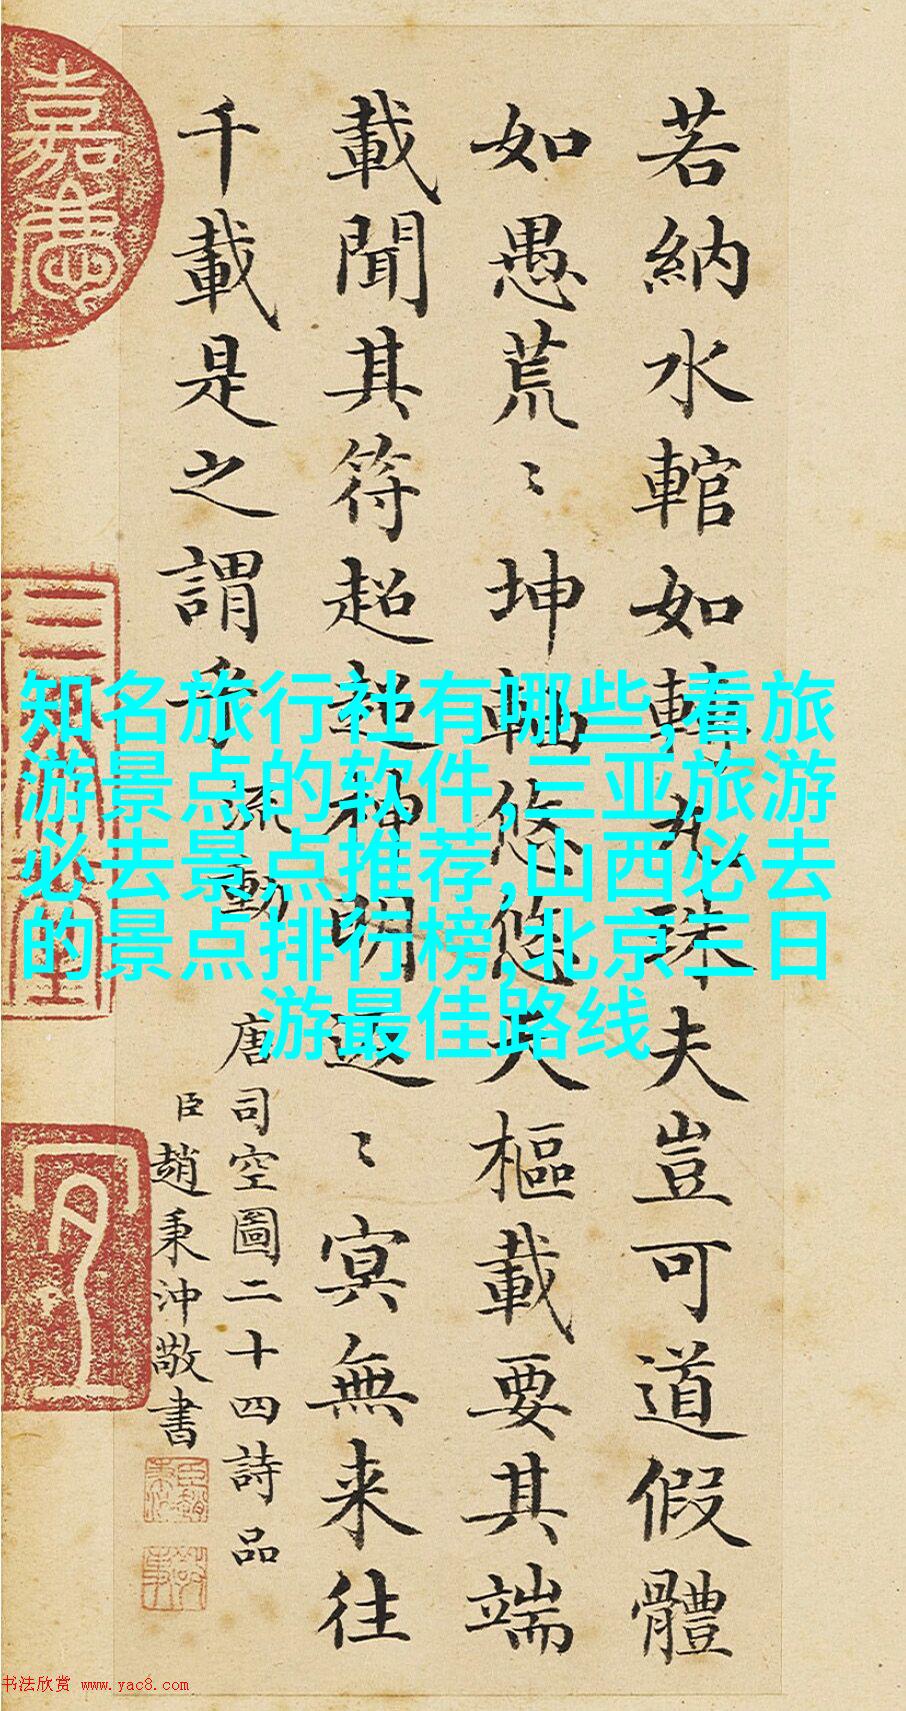 若納水輨如轉丸珠夫豈可道假體
如愚荒〻坤軸悠悠天樞載要其端
載聞其符超超神明返〻冥無来往
千載是之謂乎 流動
唐司空圖二十四詩品
臣趙秉沖敬書
嘉慶
知名旅行社有哪些,看旅
游景点的软件,三亚旅游
必去景点推荐,山西必去
的景点排行榜,北京三日
游最佳路线
书法欣赏 www.yac8.com